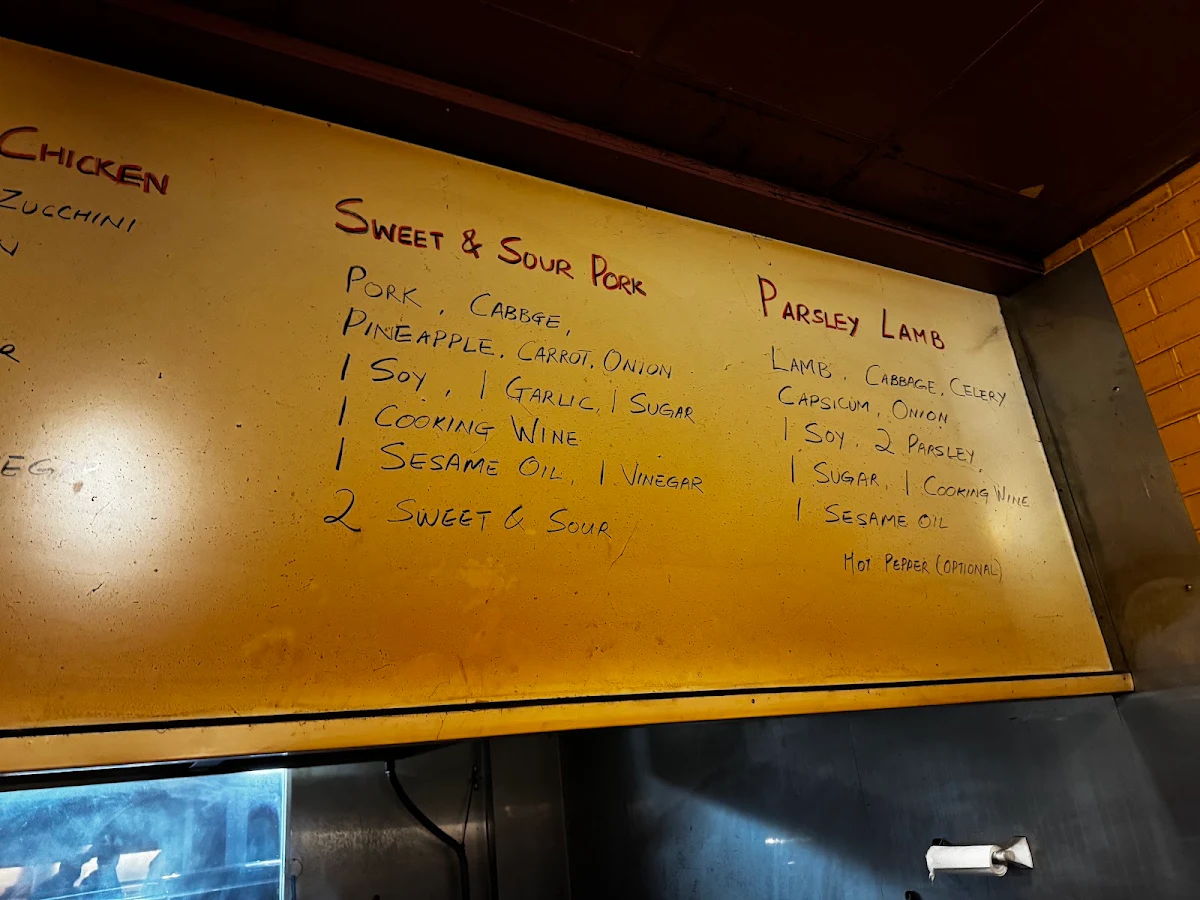 CHICKEN
ZUCCHINI
SWEET & SOUR PORK
PORK, CABBGE,
PINEAPPLE, CARROT, ONION
1 SOY, 1 GARLIC, 1 SUGAR
1 COOKING WINE
1 SESAME OIL, 1 VINEGAR
2 SWEET & SOUR
PARSLEY LAMB
LAMB, CABBAGE, CELERY
CAPSICUM, ONION
1 SOY, 2 PARSLEY,
1 SUGAR, 1 COOKING WINE
1 SESAME OIL
HOT PEPPER (OPTIONAL)